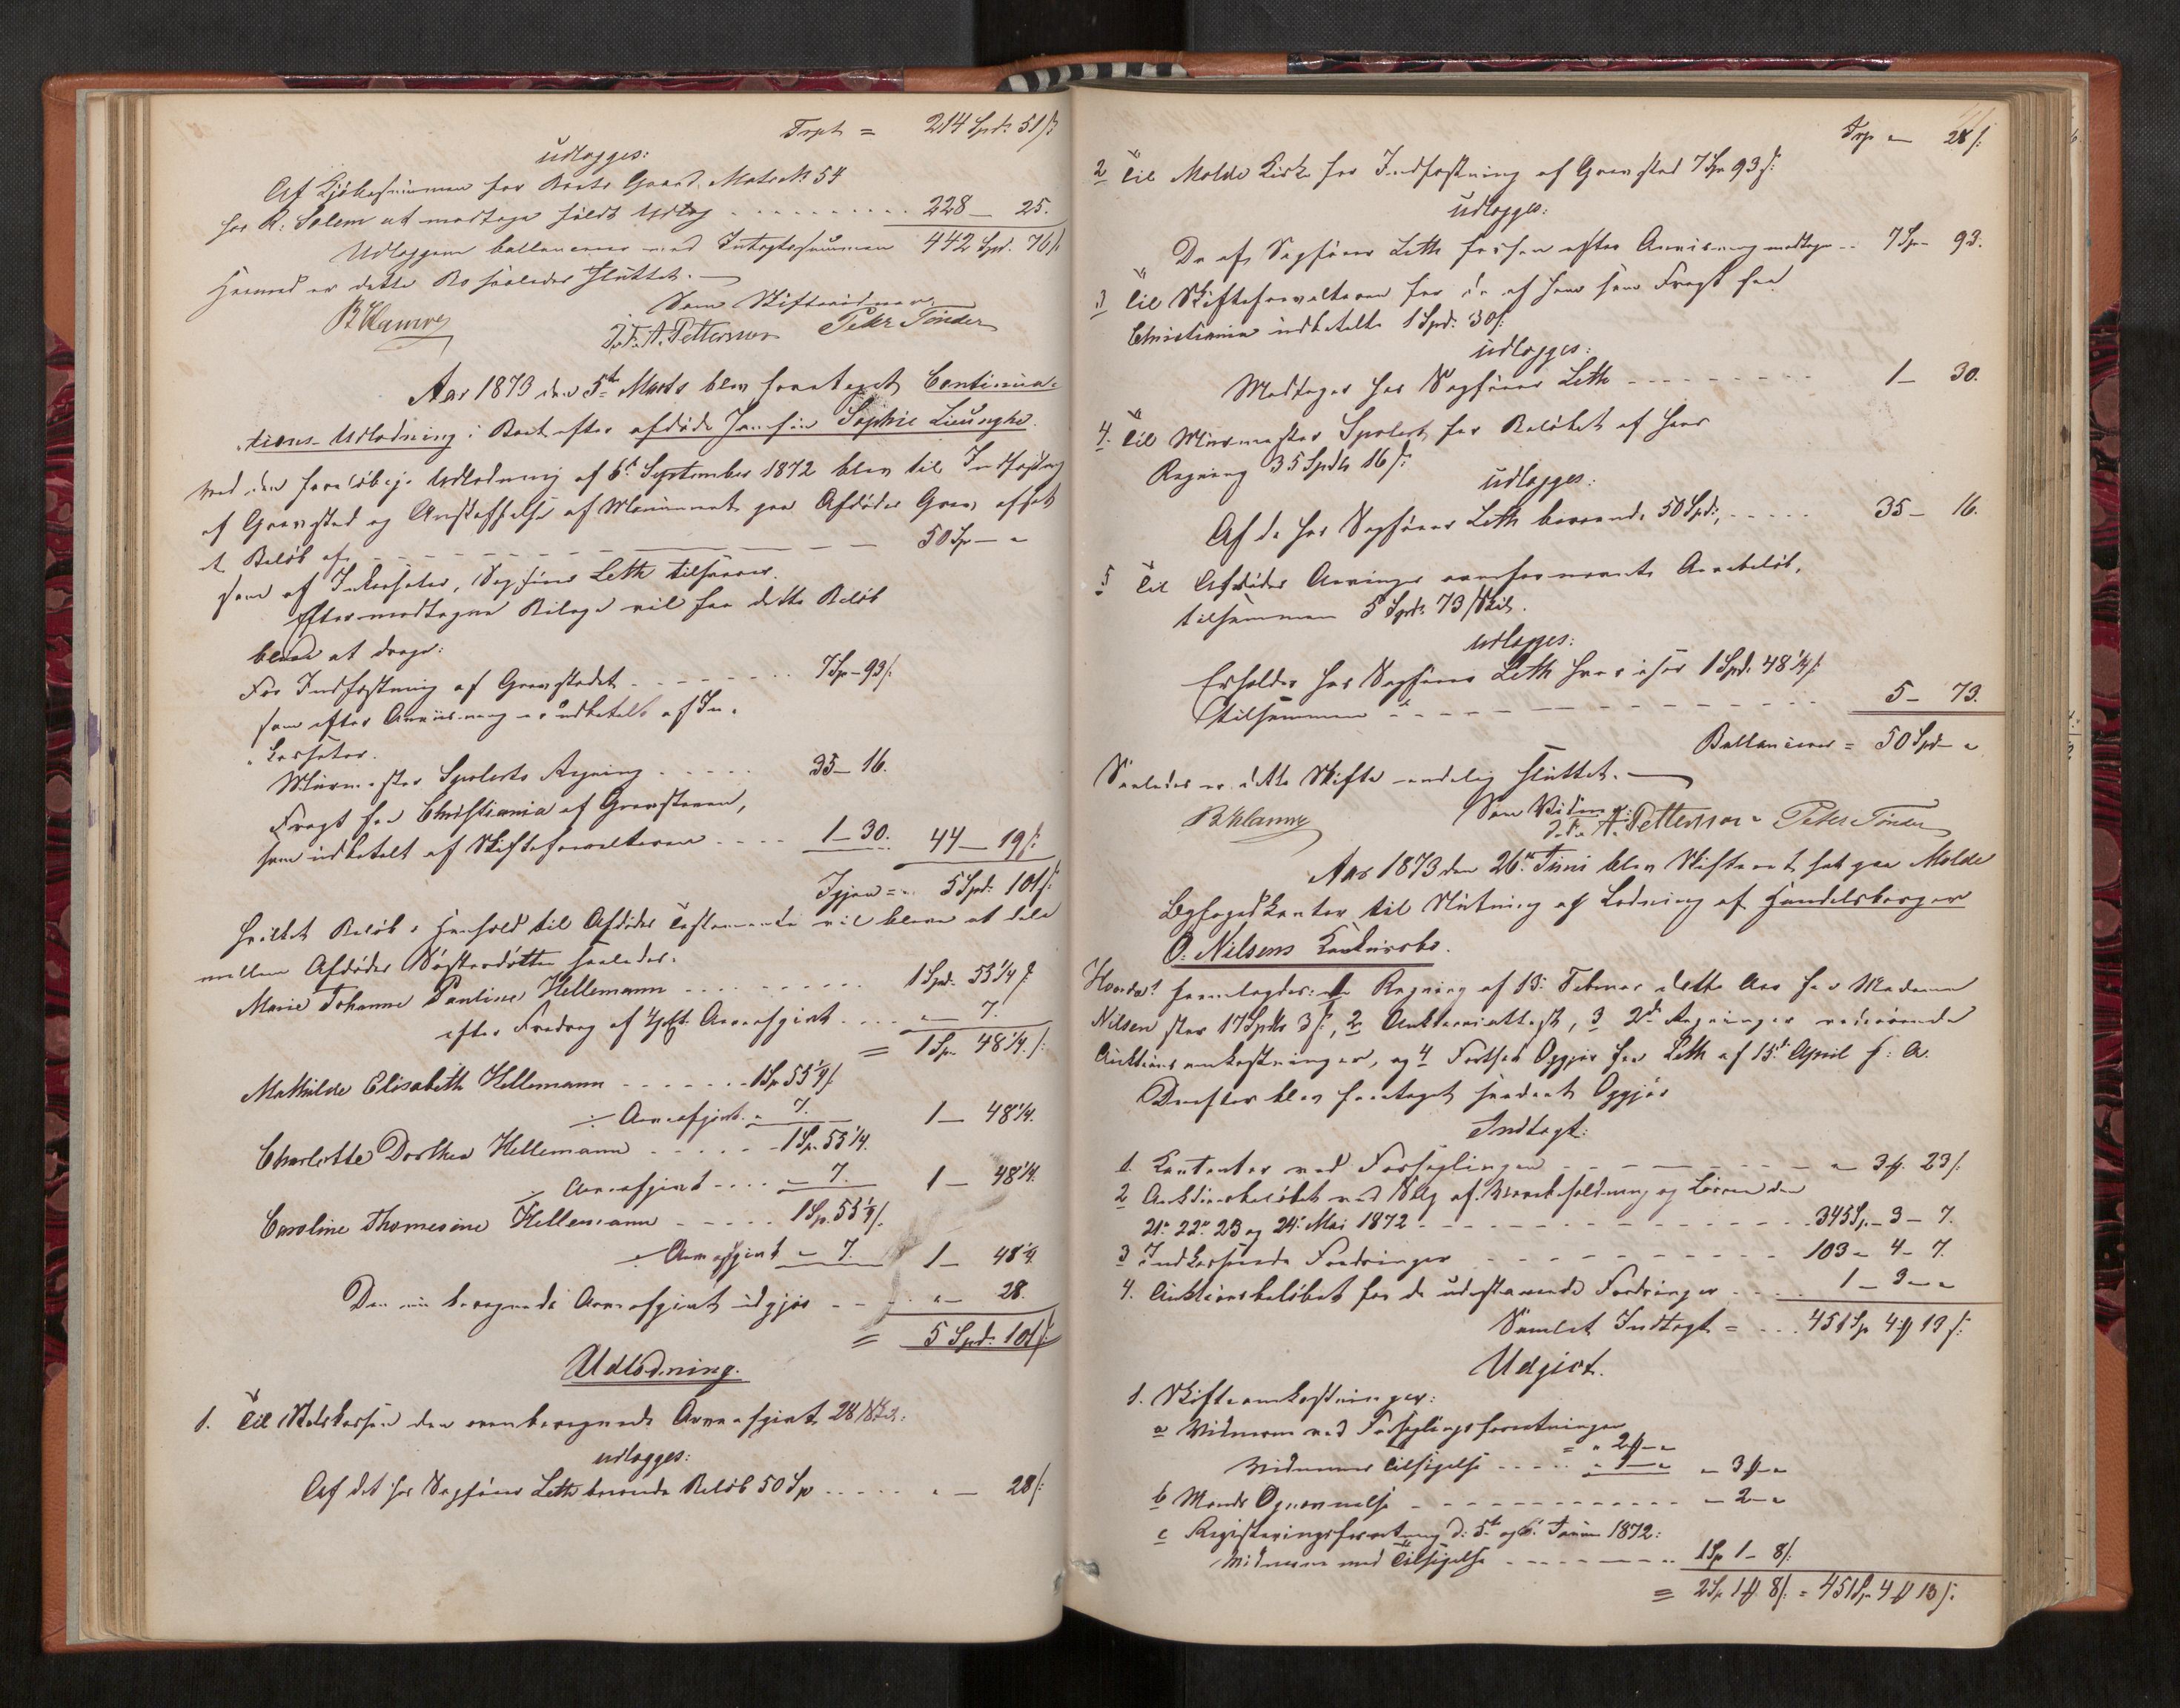 Trpt = 214 Spd: 51 ß
udlægges:
Af Kjøbesummen for Boets Gaard Matr. No 54
hos R. Solem at modtage fuldt Udlæg 228 – 25.
Udlæggene ballancerer med Indtægtssummen 442 Spd. 76 ß
Hermed er dette Bo saaledes sluttet. –
Som Skiftevidner
J. Fr. A. Pettersson Peter Tønder
Aar 1873 den 5te Marts blev foretaget Continua-
tions-Udlodning i Boet efter afdøde Jomfru Sophie Lieunghe.
Ved den foreløbige Udlodning af 6te September 1872 blev til Indfæstning
af Gravsted og Anskaffelse af Monument paa Afdødes Grav afsat
et Beløb af 50 Sp – "
som af Inkassator, Sagfører Leth tilsvarer.
Efter modtagne Bilage vil fra dette Beløb
blive at drage:
For Indfæstning af Gravstedet 7 Sp – 93 ß
som efter Anviisning er udbetalt af In-
kassator.
Murmester Spolerts Regning 35 – 16.
Fragt fra Christiania af Gravstenen,
som udbetalt af Skifteforvalteren 1 – 30. 44 – 19 ß
Igjen = 5 Spd: 101 ß
hvilket Beløb i Henhold til Afdødes Testamente vil blive at dele
mellem Afdødes Søsterdøttre saaledes:
Marie Johanne Pauline Hellemann 1 Spd. 55 1/4 ß
efter Fradrag af 4 pCt. Arveafgivt " 7.
= 1 Sp 48 1/4 ß
Mathilde Elisabeth Hellemann 1 Sp 55 1/4 ß
÷ Arveafgivt " 7. 1 – 48 1/4.
Charlotte Dorthea Hellemann 1 Sp. 55 1/4.
÷ Arveafgivt " 7. 1 – 48 1/4.
Caroline Thomesine Hellemann 1 Sp. 55 1/4 ß.
÷ Arveafgivt " 7. 1 – 48 1/4
Den nu beregnede Arveafgivt udgjør " – 28.
= 5 Spd: 101 ß
Udlodning.
1. Til Statskassen den ovenberegnede Arveafgivt 28 Skil:
udlægges:
Af det hos Sagfører Leth beroende Beløb 50 Sp " – 28 ß
Trp " 28 ß
2 Til Molde Kirke for Indfæstning af Gravsted 7 Sp 93 ß
udlægges:
De af Sagfører Leth forhen efter Anvisning modtagne 7 Sp – 93.
3 Til Skifteforvalteren for de af ham som Fragt fra
Christiania udbetalte 1 Spd: 30 ß
udlægges:
Modtager hos Sagfører Leth 1 – 30.
4. Til Murmester Spolert for Beløbet af hans
Regning 35 Spdlr 16 ß:
udlægges:
Af de hos Sagfører Leth beroende 50 Spd: 35 – 16.
5 Til Afdødes Arvinger ovenfornævnte Arvebeløb,
tilsammen 5 Spd: 73 Skil.
udlægges:
Erholder hos Sagfører Leth hver især 1 Spd. 48 1/4 ß
tilsammen 5 – 73.
Ballancerer = 50 Spd – "
Saaledes er dette Skifte endelig sluttet. –
Som Vidner:
J. Fr. A. Pettersson Peter Tønder
Aar 1873 den 26de Juni blev Skifteret sat paa Molde
Byfogedkontor til Slutning af Lodning af Handelsborger
O. Nilsens Konkursbo.
Hvorda: fremlagdes: 1 Regning af 15. Februar dette Aar fra Madame
Nilsen stor 17 Spdlr 3 ß, 2 Auktionsattest, 3 2de Regninger vedrørende
Auktionsomkostninger, og 4 Fortsat Opgjør fra Leth af 15de April h: A.
Derefter blev foretaget saadant Opgjør
Indtægt:
1. Kontanter ved Forseglingen " 3 ₰ 23 ß
2 Auktionsbeløbet ved Salg af Varebeholdning og Løsøre den
21de 22de 23 og 24de Mai 1872 345 Sp – 3 – 7.
3 Indkasserede Fordringer 103 – 4 – 7.
4. Auktionsbeløbet for de udestaaende Fordringer 1 – 3 – "
Samlet Indtægt = 451 Sp 4 ₰ 13 ß
Udgivt.
1. Skifteomkostninger:
a Vidnerne ved Forseglingsforretningen
= " 2 ₰ – "
Vidnernes Tilsigelse " 1 – " " 3 ₰ – "
b Mænds Opnævnelse " – 2 – "
c Registreringsforretning d: 5te og 6te Januar 1872:
Vidnerne med Tilsigelse 1 Sp 1 – 8 ß
= 2 Sp 1 ₰ 8 ß = 451 Sp 4 ₰ 13 ß